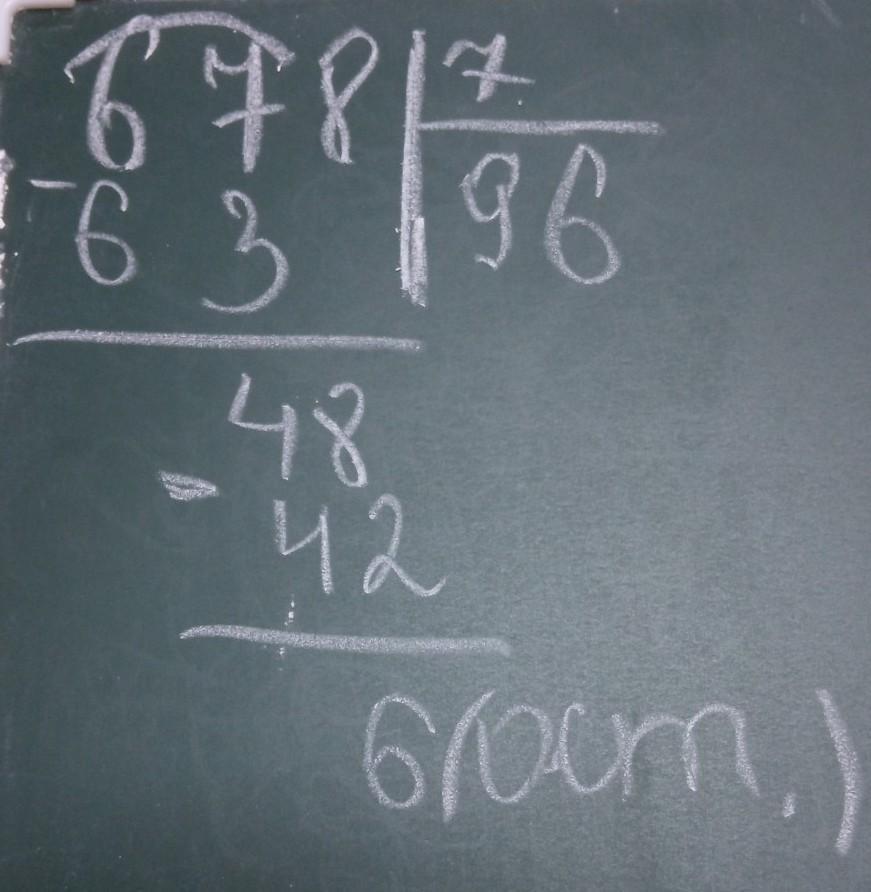 678 7
- 63 96
48
- 42
6 (ост.)